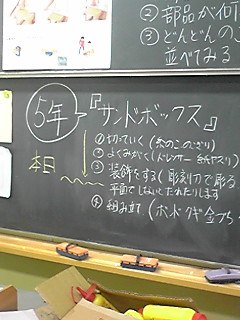 ② 部品が何
③ どんどんの
並べてみる
5年
『サンドボックス』
本日
① 切っていく (糸のこのこぎり)
② よくみがく (ドレッサー 紙ヤスリ)
③ 装飾をする (彫刻刀で彫る
平面でしないと
④ 組み立て (ボンド クギ 金づち